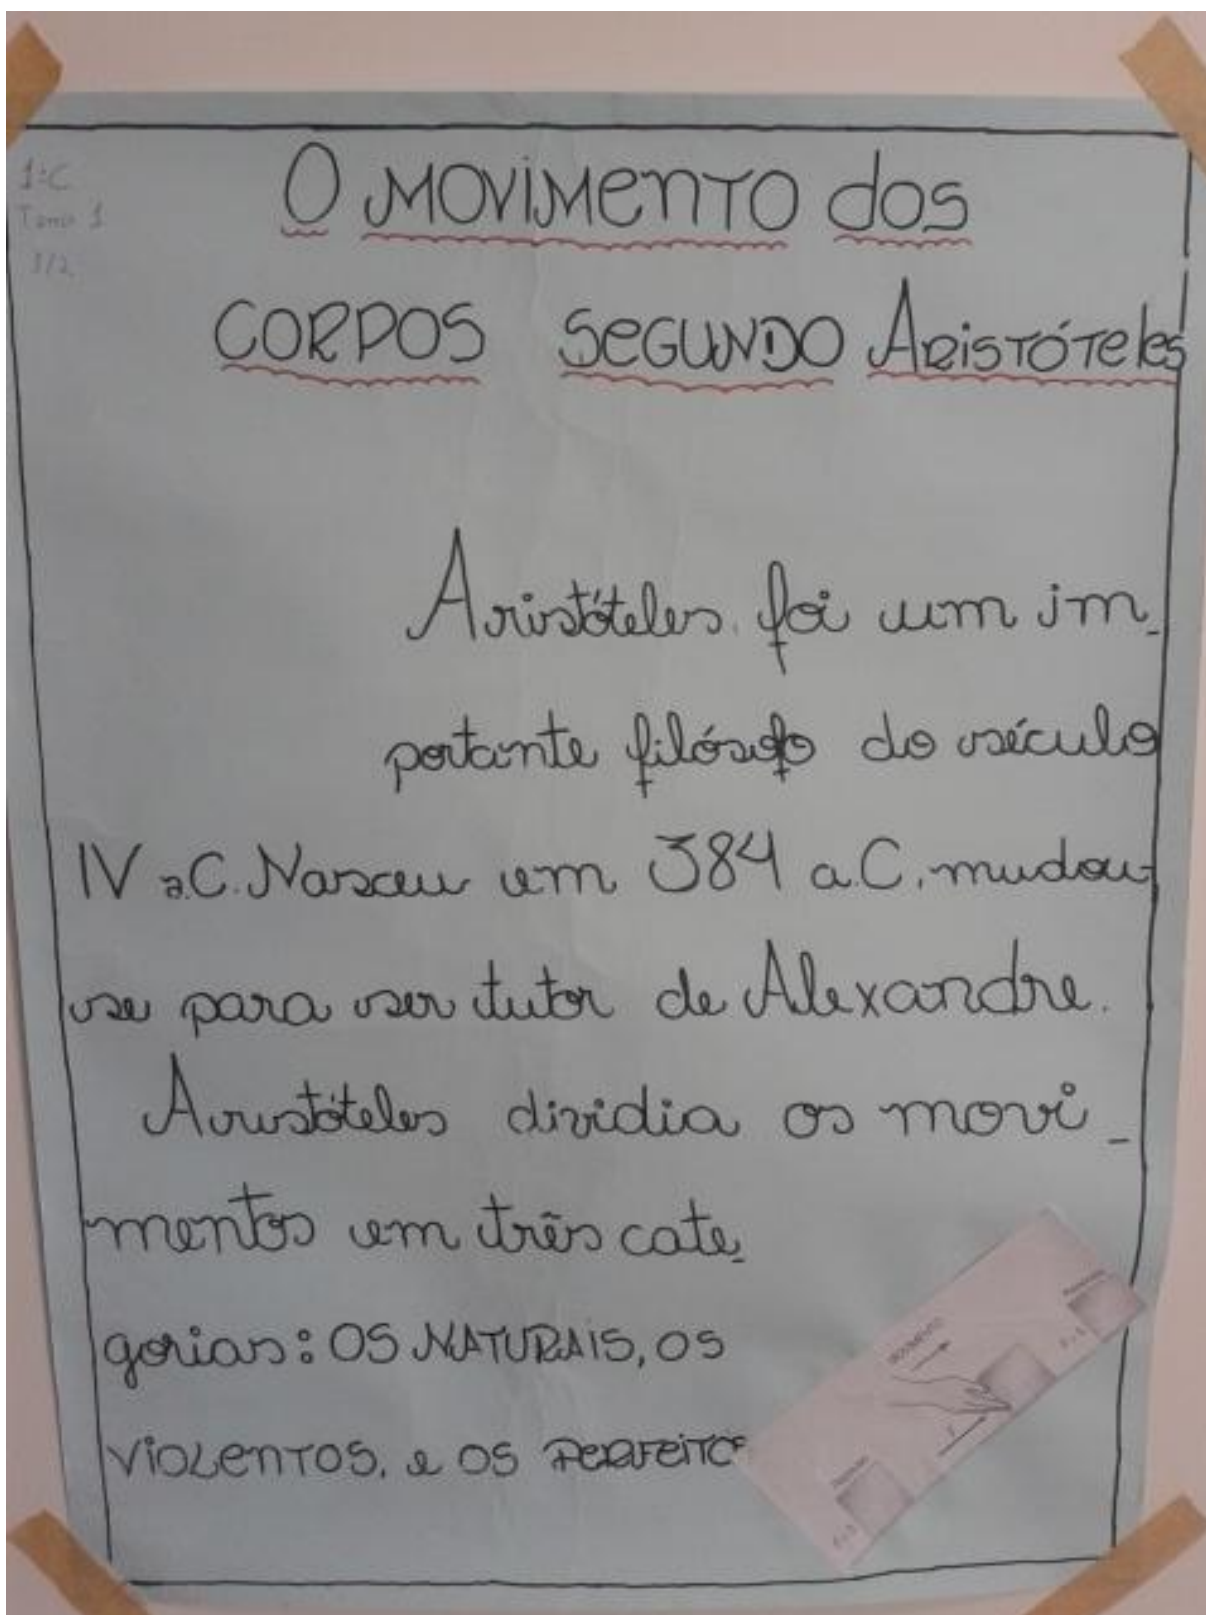 1ºC
Tema 1
1/2
O MOViMeNTO dos
CORPOS SeGUNDO ARisTÓTeles
Aristóteles foi um im-
portante filósofo do século
IV a.C. Nasceu em 384 a.C. mudou-
se para ser tutor de Alexandre.
Aristóteles dividia os movi-
mentos em três cate-
gorias: OS NATURAiS, OS
ViOLeNTOS, e OS PeRFeiTOS
MOVIMENTO
F
F = 0